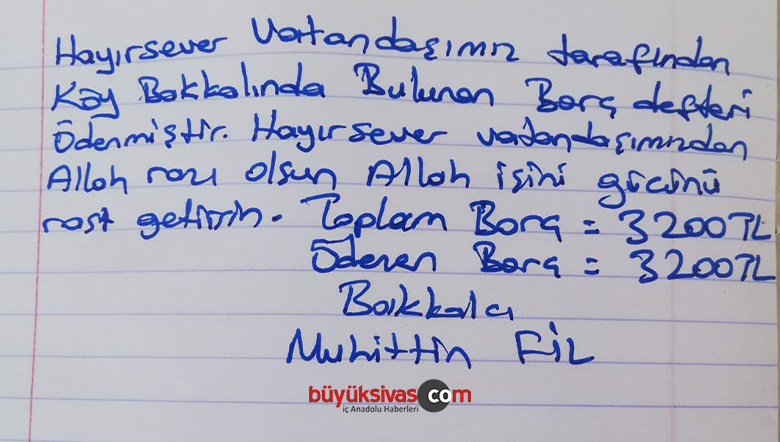 Hayırsever Vatandaşımız tarafından
Köy Bakkalında Bulunan Borç defteri
Ödenmiştir. Hayırsever vatandaşımızdan
Allah razı olsun Allah işini gücünü
rast getirsin. Toplam Borç = 3200TL
Ödenen Borç = 3200TL
Bakkalcı
Muhittin FİL
büyüksivas.com
iç Anadolu Haberleri